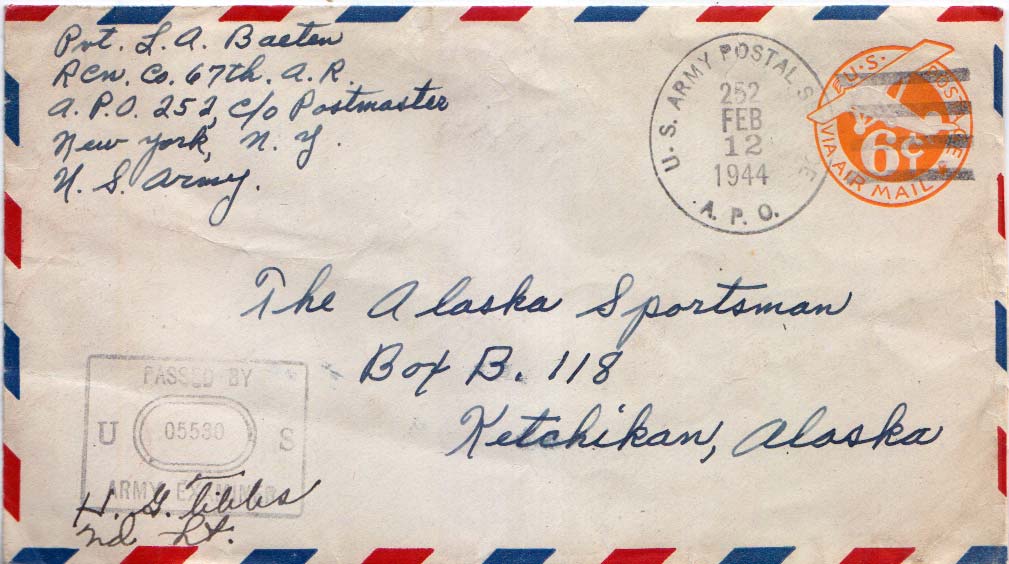 Pvt. L. A. Baeten
RCn. Co. 67th. A. R.
A. P. O. 252, c/o Postmaster
New York, N. Y.
U. S. Army.
U. S. ARMY POSTAL S
252
FEB
12
1944
A. P. O.
U. S. POSTAGE
6¢
VIA AIR MAIL
The Alaska Sportsman
Box B. 118
Ketchikan, Alaska
PASSED BY
U 05530 S
ARMY EXAMINER
H. G. Tibbs
2nd Lt.